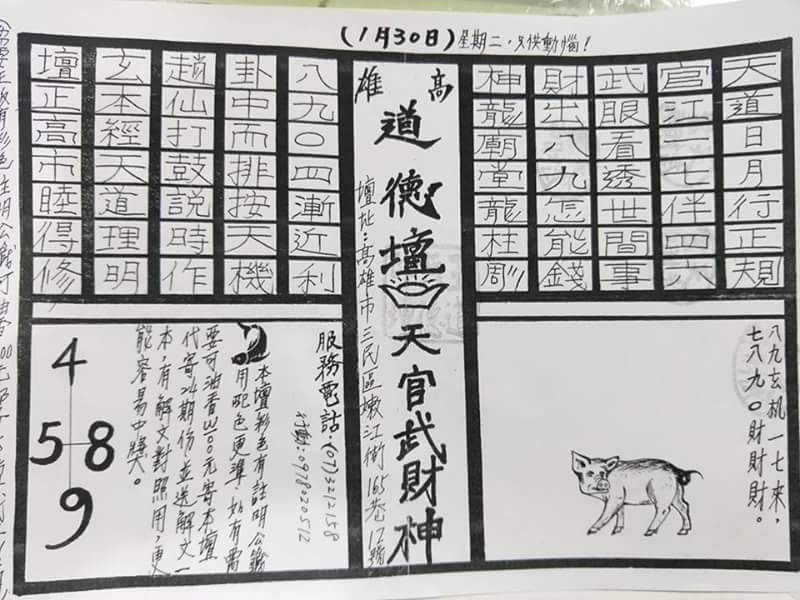 (1月30日)星期二，只供動惱！
天道日月行正規
官江二七伴四六
武眼看透世間事
財出八九怎能錢
神龍廟堂龍柱
高雄
道德壇天官武財神
壇址：高雄市三民區嫩江街165巷12號
八九〇四漸近利
卦中而排按天機
趙仙打鼓說時作
玄本經天道理明
壇正高市睦得修
八九玄机一七來，
七八九〇財財財。
服務電話：(07)3212158
行動：0978020512
本壇彩色有註明公館
用配色更準，如有需
要可油香以00元寄本壇
代寄24期份，並送解文一
本，有解文對照用，更
能容易中獎。
4
5 8
9